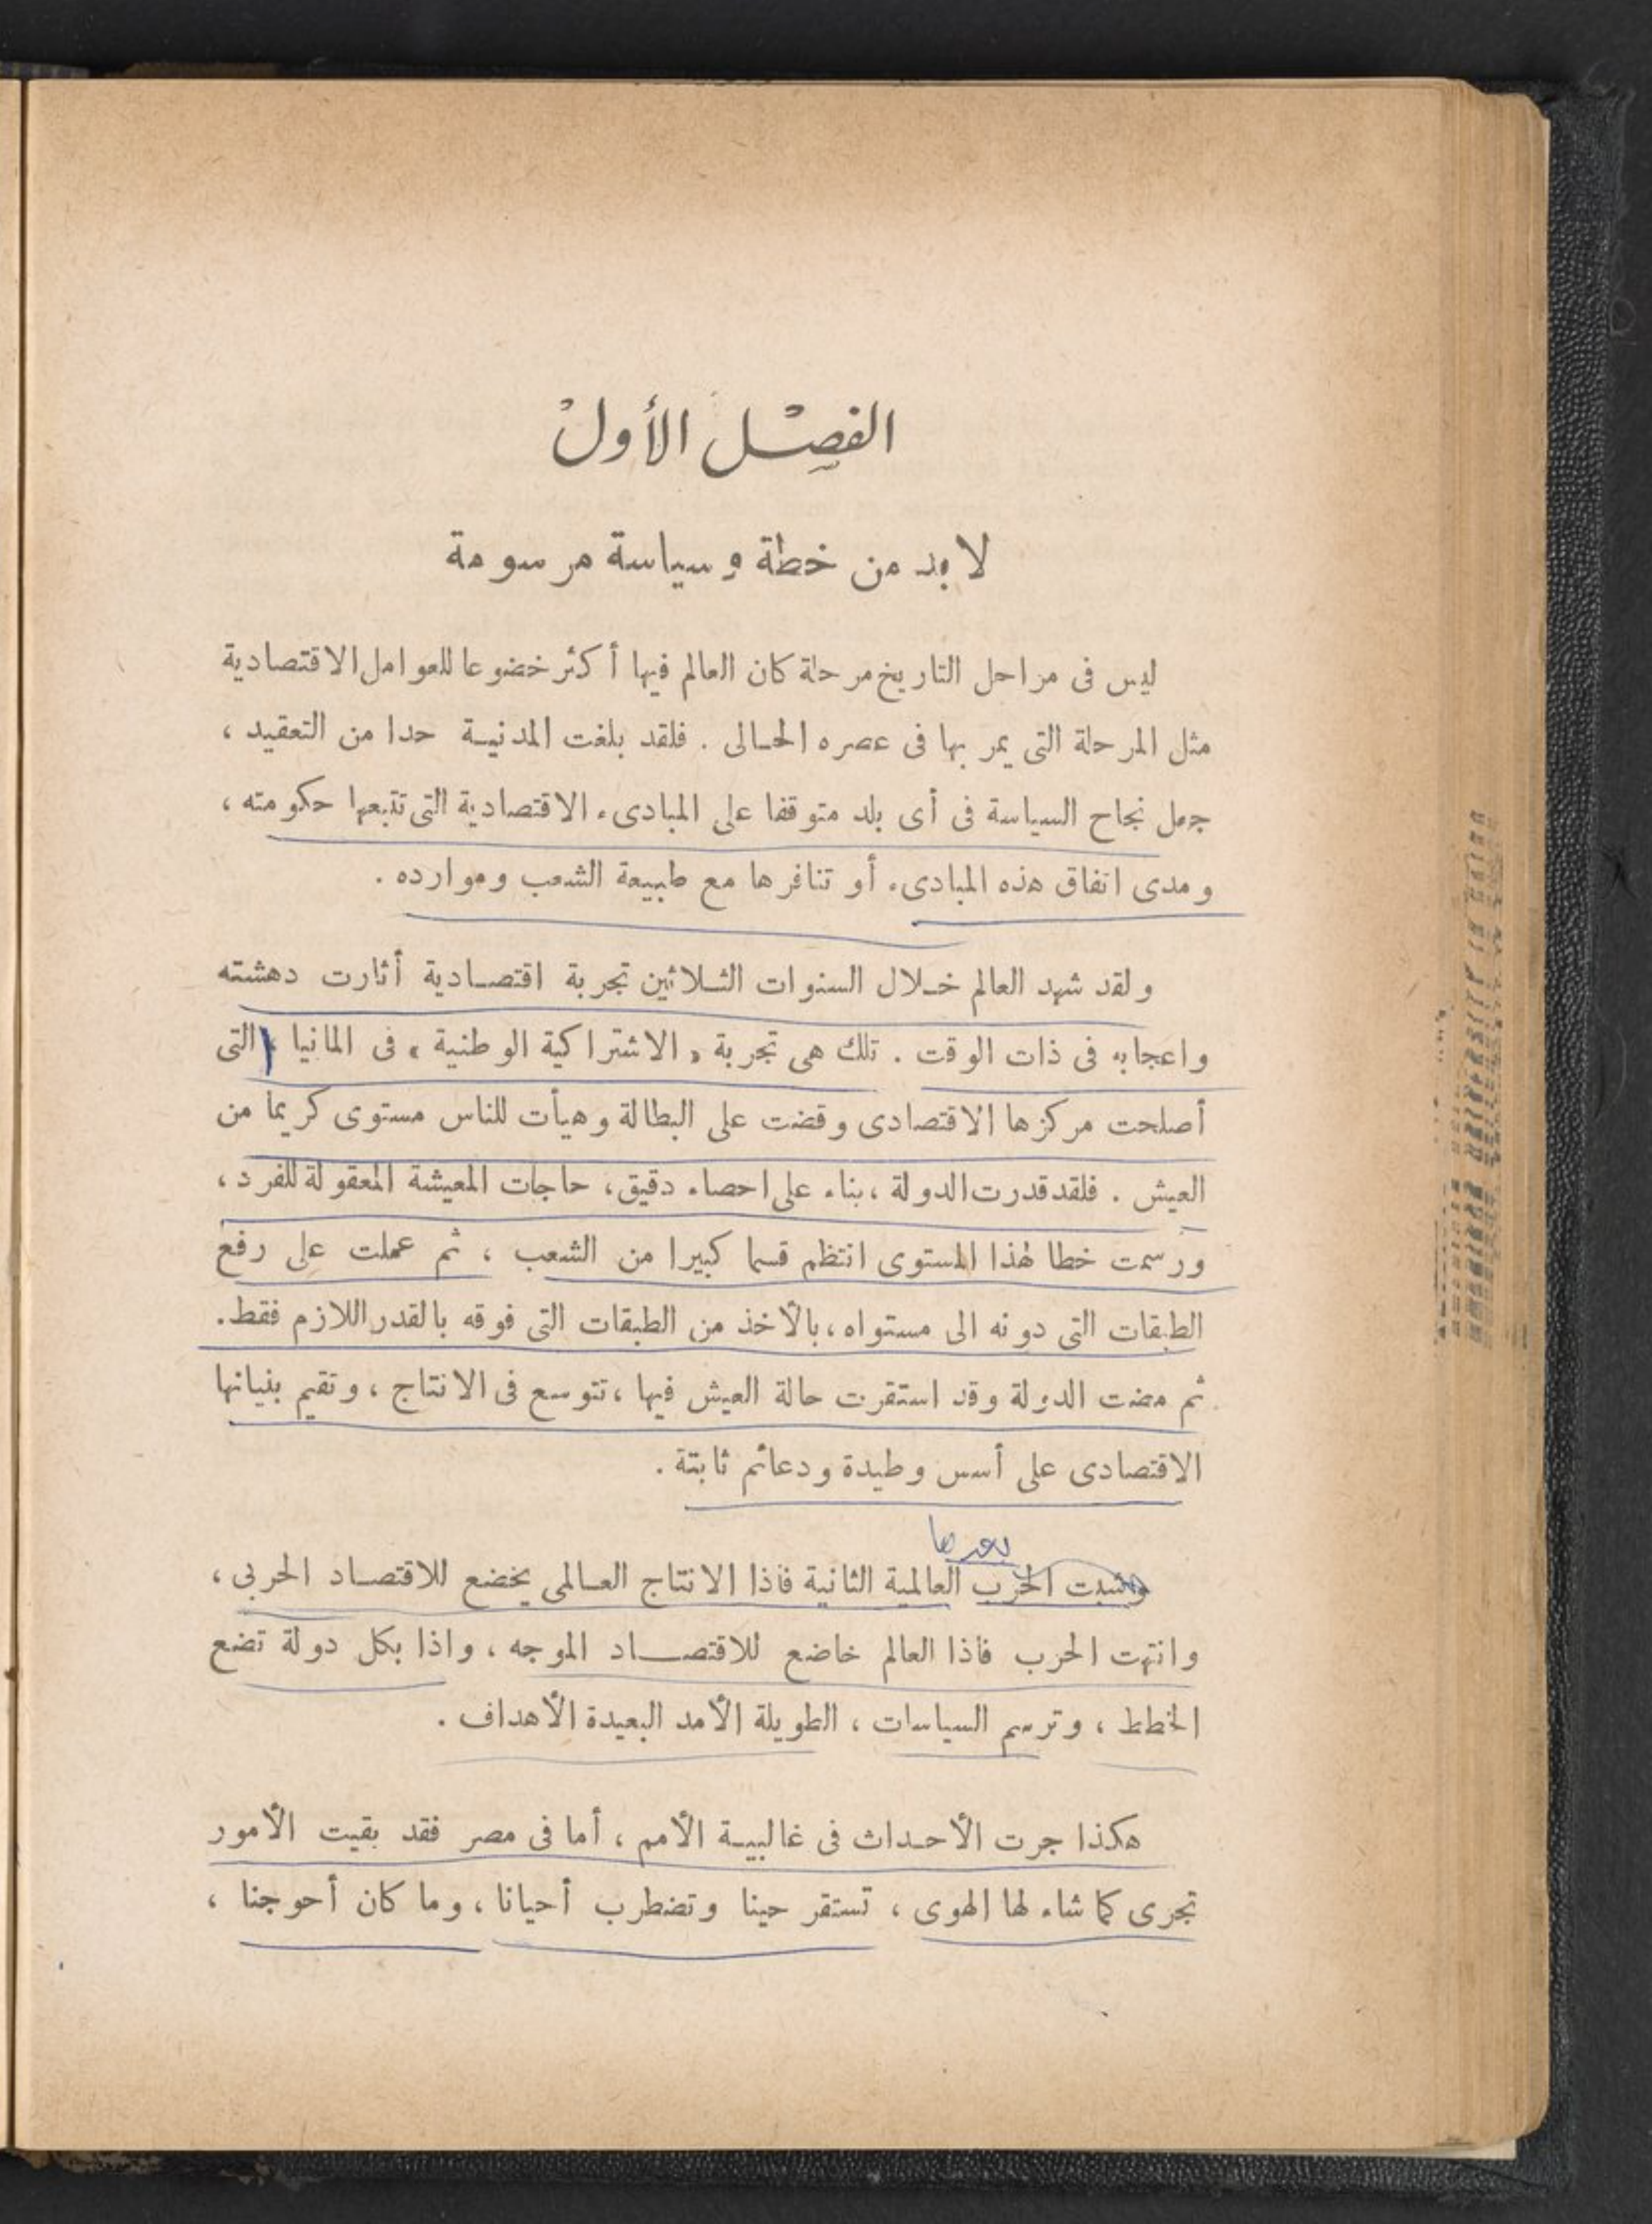 الفصل الأول
لا بد من خطة وسياسة مرسومة
ليس فى مراحل التاريخ مرحلة كان العالم فيها أكثر خضوعا للعوامل الاقتصادية
مثل المرحلة التى يمر بها فى عصره الحالى . فلقد بلغت المدنية حدا من التعقيد ،
جعل نجاح السياسة فى أى بلد متوقفا على المبادىء الاقتصادية التى تتبعها حكومته ،
ومدى اتفاق هذه المبادىء أو تنافرها مع طبيعة الشعب وموارده .
ولقد شهد العالم خلال السنوات الثلاثين تجربة اقتصادية أثارت دهشته
واعجابه فى ذات الوقت . تلك هى تجربة « الاشتراكية الوطنية » فى المانيا ، التى
أصلحت مركزها الاقتصادى وقضت على البطالة وهيأت للناس مستوى كريما من
العيش . فلقد قدرت الدولة ، بناء على احصاء دقيق ، حاجات المعيشة المعقولة للفرد ،
ورسمت خطا لهذا المستوى انتظم قسما كبيرا من الشعب ، ثم عملت على رفع
الطبقات التى دونه الى مستواه ، بالأخذ من الطبقات التى فوقه بالقدر اللازم فقط .
ثم مضت الدولة وقد استقرت حالة العيش فيها ، تتوسع فى الانتاج ، وتقيم بنيانها
الاقتصادى على أسس وطيدة ودعائم ثابتة .
بعدها
وشبت الحرب العالمية الثانية فاذا الانتاج العالمى يخضع للاقتصاد الحربى ،
وانتهت الحرب فاذا العالم خاضع للاقتصاد الموجه ، واذا بكل دولة تضع
الخطط ، وترسم السياسات ، الطويلة الأمد البعيدة الأهداف .
هكذا جرت الأحداث فى غالبية الأمم ، أما فى مصر فقد بقيت الأمور
تجرى كما شاء لها الهوى ، تستقر حينا وتضطرب أحيانا ، وما كان أحوجنا ،